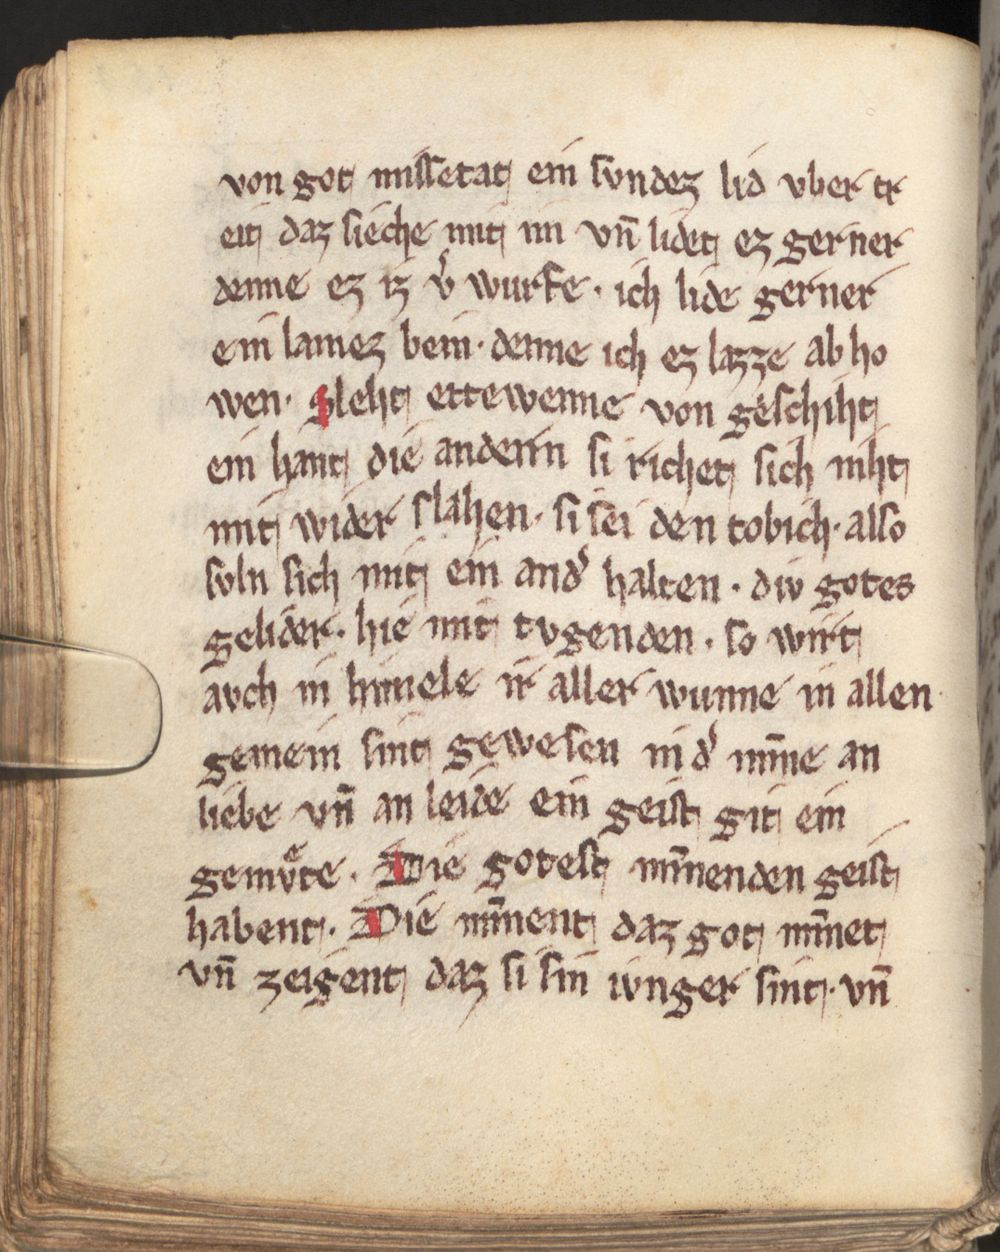 von got missetat ein svndez lid vber tr
eit daz sieche mit im vn̄ lidet ez gerner
denne ez iz v͛ wurke · ich lide gerner
ein lamez bein · denne ich ez lazze ab ho
wen · Sleht ettewenne von geschiht
ein hant die anderin si richet sich niht
mit wider slahen · si sei den tobich · also
svln sich mit ein and͛ halten · div gotes
gelider · hie mit tvgenden · so wirt
avch in himele ir aller wunne in allen
gemein sint gewesen in d͛ mīne an
liebe vn̄ an leide ein geist git ein
gemvͤte · Die gotest mīnenden geist
habent · Die mīnent daz got mīnet
vn̄ zeigent daz si sin ivnger sint · vn̄